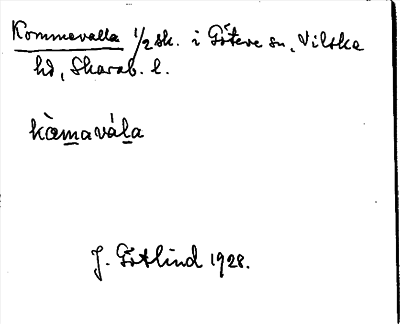 Kommevalla 1/2 sk. i Göteve sn, Vilske
hd, Skarab. l.
kòmavála
J. Götlind 1928.